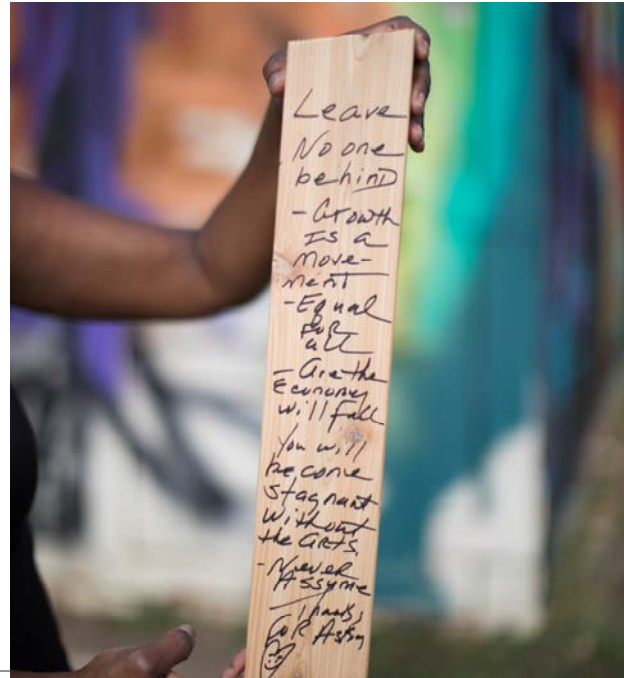 Leave
No one
behind
- Growth
Is a
Move-
ment
- Equal
FOR
all
- Or the
Economy
will Fall
You will
become
stagnant
without
the Arts
- Never
Assume
Thanks,
FOR Asking